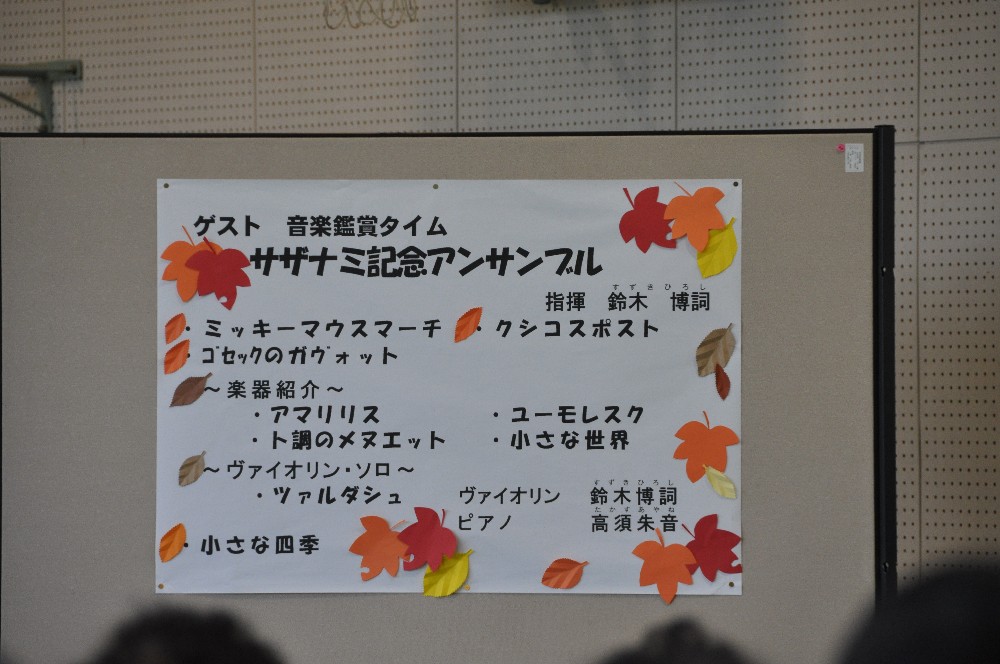 ゲスト 音楽鑑賞タイム
サザナミ記念アンサンブル
すずきひろし
指揮 鈴木 博詞
・ミッキーマウスマーチ ・クシコスポスト
・ゴセックのガヴォット
～楽器紹介～
・アマリリス ・ユーモレスク
・ト調のメヌエット ・小さな世界
～ヴァイオリン・ソロ～
すずきひろし
・ツァルダシュ ヴァイオリン 鈴木博詞
たかすあやね
ピアノ 高須朱音
・小さな四季